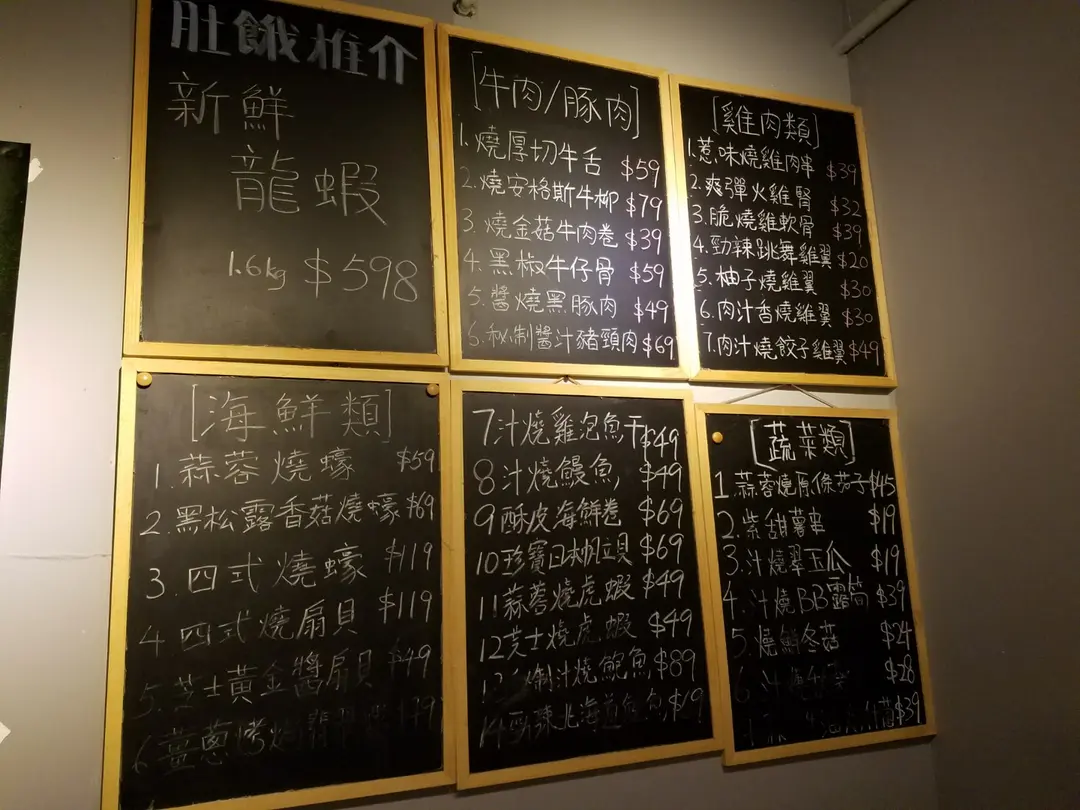 肚餓推介
新鮮
龍蝦
1.6kg $598
[牛肉/豚肉]
1.燒厚切牛舌 $59
2.燒安格斯牛柳 $79
3.燒金菇牛肉卷 $39
4.黑椒牛仔骨 $59
5.醬燒黑豚肉 $49
6.秘制醬汁豬頸肉 $69
[雞肉類]
1.惹味燒雞肉串 $39
2.爽彈火雞腎 $32
3.脆燒雞軟骨 $39
4.勁辣跳舞雞翼 $20
5.柚子燒雞翼 $30
6.肉汁香燒雞翼 $30
7.肉汁燒餃子雞翼 $49
[海鮮類]
1.蒜蓉燒蠔 $59
2.黑松露香菇燒蠔 $69
3.四式燒蠔 $119
4.四式燒扇貝 $119
5.芝士黃金醬扇貝 $49
6.薑蔥
7汁燒雞泡魚干 $49
8汁燒鰻魚 $49
9酥皮海鮮卷 $69
10珍寶日本帆立貝 $69
11蒜蓉燒虎蝦 $49
12芝士燒虎蝦 $49
制汁燒鮑魚 $89
14勁辣北海道
[蔬菜類]
1蒜蓉燒原條茄子 $45
2.紫甜薯串 $19
3.汁燒翠玉瓜 $19
4.汁燒BB露筍 $39
5.燒鮮冬菇 $24
6.汁燒 $28
$39